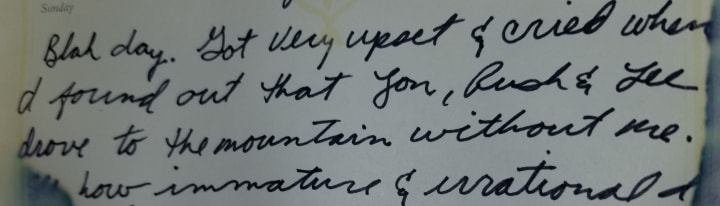 Sunday
Blah day. Got very upset & cried when
I found out that Jon, Rush & Lee
drove to the mountain without me.
how immature & irrational I